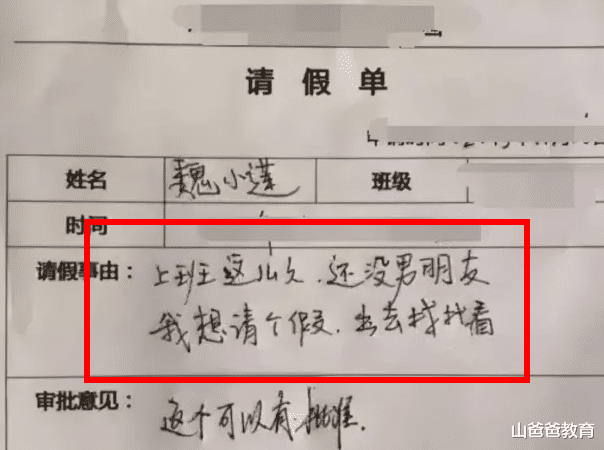 请假单
姓名 魏小莲 班级
时间
请假事由：上班这么久.还没男朋友
我想请个假.出去找找看
审批意见：这个可以有.批准.
山爸爸教育